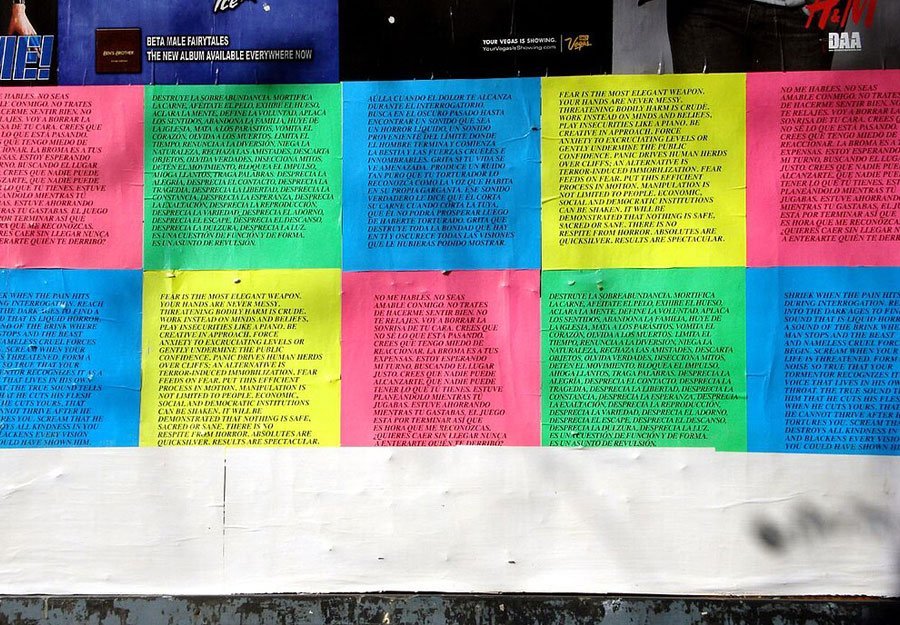 IE!
Ice
BEN'S BROTHER
BETA MALE FAIRYTALES
THE NEW ALBUM AVAILABLE EVERYWHERE NOW
YOUR VEGAS IS SHOWING.
YourVegasIsShowing.com
Vegas
H&M
DAA
HABLES. NO SEAS
CONMIGO. NO TRATES
HACERME SENTIR BIEN. NO
RELAJES. VOY A BORRAR LA
SA DE TU CARA. CREES QUE
LO QUE ESTÁ PASANDO.
QUE TENGO MIEDO DE
CIONAR. LA BROMA ES A TUS
SAS. ESTOY ESPERANDO
URNO. BUSCANDO EL LUGAR
CREES QUE NADIE PUEDE
NZARTE, QUE NADIE PUEDE
R LO QUE TÚ TIENES. ESTUVE
EÁNDOLO MIENTRAS TU
BAS. ESTUVE AHORRANDO
TRAS TU GASTABAS. EL JUEGO
POR TERMINAR ASÍ QUE
RA QUE ME RECONOZCAS.
ERES CAER SIN LLEGAR NUNCA
TERARTE QUIÉN TE DERRIBÓ?
DESTRUYE LA SOBREABUNDANCIA. MORTIFICA
LA CARNE, AFEITATE EL PELO, EXHIBE EL HUESO,
ACLARA LA MENTE, DEFINE LA VOLUNTAD, APLACA
LOS SENTIDOS, ABANDONA LA FAMILIA, HUYE DE
LA IGLESIA, MATA A LOS PARÁSITOS, VOMITA EL
CORAZÓN, OLVIDA LOS MUERTOS. LIMITA EL
TIEMPO, RENUNCIA A LA DIVERSIÓN, NIEGA LA
NATURALEZA, RECHAZA LAS AMISTADES, DESCARTA
OBJETOS, OLVIDA VERDADES, DISECCIONA MITOS,
DETEN EL MOVIMIENTO, BLOQUEA EL IMPULSO,
AHOGA LLANTOS, TRAGA PALABRAS. DESPRECIA LA
ALEGRÍA, DESPRECIA EL CONTACTO, DESPRECIA LA
TRAGEDIA, DESPRECIA LA LIBERTAD, DESPRECIA LA
CONSTANCIA, DESPRECIA LA ESPERANZA, DESPRECIA
LA EXALTACIÓN, DESPRECIA LA REPRODUCCIÓN,
DESPRECIA LA VARIEDAD, DESPRECIA EL ADORNO,
DESPRECIA EL ESCAPE, DESPRECIA EL DESCANSO,
DESPRECIA LA DULZURA, DESPRECIA LA LUZ.
ES UNA CUESTIÓN DE FUNCIÓN Y DE FORMA.
ES UN ASUNTO DE REVULSIÓN.
AÚLLA CUANDO EL DOLOR TE ALCANZA
DURANTE EL INTERROGATORIO.
BUSCA EN EL OSCURO PASADO HASTA
ENCONTRAR UN SONIDO QUE SEA
UN HORROR LÍQUIDO, UN SONIDO
PROVENIENTE DEL LÍMITE DONDE
EL HOMBRE TERMINA Y COMIENZA
LA BESTIA Y LAS FUERZAS CRUELES E
INNOMBRABLES. GRITA SI TU VIDA SE
VE AMENAZADA. PRODUCE UN RUIDO
TAN PURO QUE TU TORTURADOR LO
RECONOZCA COMO LA VOZ QUE HABITA
EN SU PROPIA GARGANTA. ESE SONIDO
VERDADERO LE DICE QUE EL CORTA
SU CARNE CUANDO CORTA LA TUYA,
QUE ÉL NO PODRÁ PROSPERAR LUEGO
DE HABERTE TORTURADO. GRITA QUE
DESTRUYE TODA LA BONDAD QUE HAY
EN TI Y OSCURECE TODAS LAS VISIONES
QUE LE HUBIERAS PODIDO MOSTRAR.
FEAR IS THE MOST ELEGANT WEAPON.
YOUR HANDS ARE NEVER MESSY.
THREATENING BODILY HARM IS CRUDE.
WORK INSTEAD ON MINDS AND BELIEFS,
PLAY INSECURITIES LIKE A PIANO. BE
CREATIVE IN APPROACH. FORCE
ANXIETY TO EXCRUCIATING LEVELS OR
GENTLY UNDERMINE THE PUBLIC
CONFIDENCE. PANIC DRIVES HUMAN HERDS
OVER CLIFFS; AN ALTERNATIVE IS
TERROR-INDUCED IMMOBILIZATION. FEAR
FEEDS ON FEAR. PUT THIS EFFICIENT
PROCESS IN MOTION. MANIPULATION IS
NOT LIMITED TO PEOPLE. ECONOMIC,
SOCIAL AND DEMOCRATIC INSTITUTIONS
CAN BE SHAKEN. IT WILL BE
DEMONSTRATED THAT NOTHING IS SAFE,
SACRED OR SANE. THERE IS NO
RESPITE FROM HORROR. ABSOLUTES ARE
QUICKSILVER. RESULTS ARE SPECTACULAR.
NO ME HABLES. NO SEAS
AMABLE CONMIGO. NO TRATES
DE HACERME SENTIR BIEN. NO
TE RELAJES. VOY A BORRAR LA
SONRISA DE TU CARA. CREES
NO SÉ LO QUE ESTÁ PASANDO.
CREES QUE TENGO MIEDO DE
REACCIONAR. LA BROMA ES A TUS
EXPENSAS. ESTOY ESPERANDO
MI TURNO. BUSCANDO EL LUGAR
JUSTO. CREES QUE NADIE PUEDE
ALCANZARTE, QUE NADIE PUEDE
TENER LO QUE TÚ TIENES. ESTUVE
PLANEÁNDOLO MIENTRAS TU
JUGABAS. ESTUVE AHORRANDO
MIENTRAS TU GASTABAS. EL
ESTÁ POR TERMINAR ASÍ QUE
ES HORA QUE ME RECONOZCAS.
¿QUIERES CAER SIN LLEGAR
A ENTERARTE QUIÉN TE DERRIBÓ?
EK WHEN THE PAIN HITS
NG INTERROGATION. REACH
THE DARK AGES TO FIND A
ND THAT IS LIQUID HORROR,
ND OF THE BRINK WHERE
STOPS AND THE BEAST
AMELESS CRUEL FORCES
SCREAM WHEN YOUR
S THREATENED. FORM A
SO TRUE THAT YOUR
ENTOR RECOGNIZES IT AS A
THAT LIVES IN HIS OWN
T. THE TRUE SOUND TELLS
AT HE CUTS HIS FLESH
HE CUTS YOURS, THAT
NOT THRIVE AFTER HE
ES YOU. SCREAM THAT HE
OYS ALL KINDNESS IN YOU
LACKENS EVERY VISION
OULD HAVE SHOWN HIM.
FEAR IS THE MOST ELEGANT WEAPON.
YOUR HANDS ARE NEVER MESSY.
THREATENING BODILY HARM IS CRUDE.
WORK INSTEAD ON MINDS AND BELIEFS,
PLAY INSECURITIES LIKE A PIANO. BE
CREATIVE IN APPROACH. FORCE
ANXIETY TO EXCRUCIATING LEVELS OR
GENTLY UNDERMINE THE PUBLIC
CONFIDENCE. PANIC DRIVES HUMAN HERDS
OVER CLIFFS; AN ALTERNATIVE IS
TERROR-INDUCED IMMOBILIZATION. FEAR
FEEDS ON FEAR. PUT THIS EFFICIENT
PROCESS IN MOTION. MANIPULATION IS
NOT LIMITED TO PEOPLE. ECONOMIC,
SOCIAL AND DEMOCRATIC INSTITUTIONS
CAN BE SHAKEN. IT WILL BE
DEMONSTRATED THAT NOTHING IS SAFE,
SACRED OR SANE. THERE IS NO
RESPITE FROM HORROR. ABSOLUTES ARE
QUICKSILVER. RESULTS ARE SPECTACULAR.
NO ME HABLES. NO SEAS
AMABLE CONMIGO. NO TRATES
DE HACERME SENTIR BIEN. NO
TE RELAJES. VOY A BORRAR LA
SONRISA DE TU CARA. CREES QUE
NO SÉ LO QUE ESTÁ PASANDO.
CREES QUE TENGO MIEDO DE
REACCIONAR. LA BROMA ES A TUS
EXPENSAS. ESTOY ESPERANDO
MI TURNO, BUSCANDO EL LUGAR
JUSTO. CREES QUE NADIE PUEDE
ALCANZARTE, QUE NADIE PUEDE
TENER LO QUE TÚ TIENES. ESTUVE
PLANEÁNDOLO MIENTRAS TU
JUGABAS. ESTUVE AHORRANDO
MIENTRAS TU GASTABAS. EL JUEGO
ESTÁ POR TERMINAR ASÍ QUE
ES HORA QUE ME RECONOZCAS.
¿QUIERES CAER SIN LLEGAR NUNCA
A ENTERARTE QUIÉN TE DERRIBÓ?
DESTRUYE LA SOBREABUNDANCIA. MORTIFICA
LA CARNE, AFEITATE EL PELO, EXHIBE EL HUESO,
ACLARA LA MENTE, DEFINE LA VOLUNTAD, APLACA
LOS SENTIDOS, ABANDONA LA FAMILIA, HUYE DE
LA IGLESIA, MATA A LOS PARÁSITOS, VOMITA EL
CORAZÓN, OLVIDA A LOS MUERTOS. LIMITA EL
TIEMPO, RENUNCIA A LA DIVERSIÓN, NIEGA LA
NATURALEZA, RECHAZA LAS AMISTADES, DESCARTA
OBJETOS, OLVIDA VERDADES, DISECCIONA MITOS,
DETEN EL MOVIMIENTO, BLOQUEA EL IMPULSO,
AHOGA LLANTOS, TRAGA PALABRAS. DESPRECIA LA
ALEGRÍA, DESPRECIA EL CONTACTO, DESPRECIA LA
TRAGEDIA, DESPRECIA LA LIBERTAD, DESPRECIA LA
CONSTANCIA, DESPRECIA LA ESPERANZA, DESPRECIA
LA EXALTACIÓN, DESPRECIA LA REPRODUCCIÓN,
DESPRECIA LA VARIEDAD, DESPRECIA EL ADORNO,
DESPRECIA EL ESCAPE, DESPRECIA EL DESCANSO,
DESPRECIA LA DULZURA, DESPRECIA LA LUZ.
ES UNA CUESTIÓN DE FUNCIÓN Y DE FORMA.
ES UN ASUNTO DE REVULSIÓN.
SHRIEK WHEN THE PAIN HITS
DURING INTERROGATION. REACH
INTO THE DARK AGES TO FIND A
SOUND THAT IS LIQUID HORROR,
A SOUND OF THE BRINK WHERE
MAN STOPS AND THE BEAST
AND NAMELESS CRUEL FORCES
BEGIN. SCREAM WHEN YOUR
LIFE IS THREATENED. FORM A
NOISE SO TRUE THAT YOUR
TORMENTOR RECOGNIZES IT AS A
VOICE THAT LIVES IN HIS OWN
THROAT. THE TRUE SOUND TELLS
HIM THAT HE CUTS HIS FLESH
WHEN HE CUTS YOURS, THAT
HE CANNOT THRIVE AFTER HE
TORTURES YOU. SCREAM THAT
DESTROYS ALL KINDNESS IN
AND BLACKENS EVERY VISION
YOU COULD HAVE SHOWN